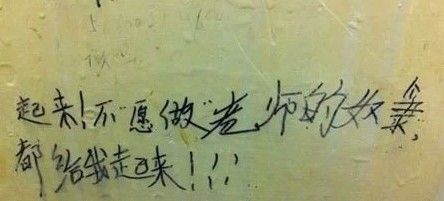 起来!不愿做老师的奴
都给我起来!!!